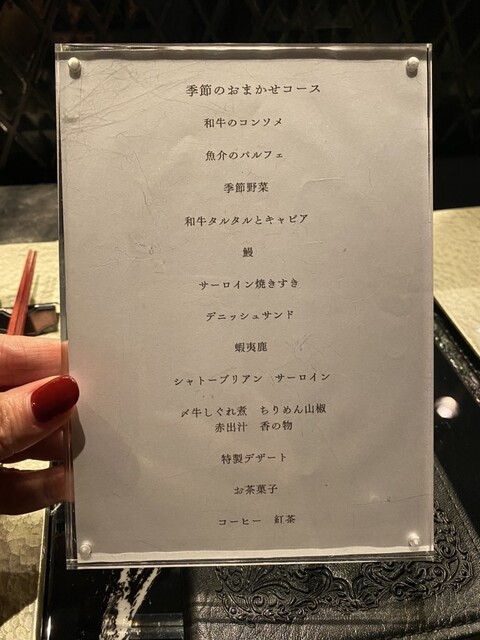 季節のおまかせコース
和牛のコンソメ
魚介のパルフェ
季節野菜
和牛タルタルとキャビア
鰻
サーロイン焼きすき
デニッシュサンド
蝦夷鹿
シャトーブリアン　サーロイン
〆牛しぐれ煮　ちりめん山椒
赤出汁　香の物
特製デザート
お茶菓子
コーヒー　紅茶